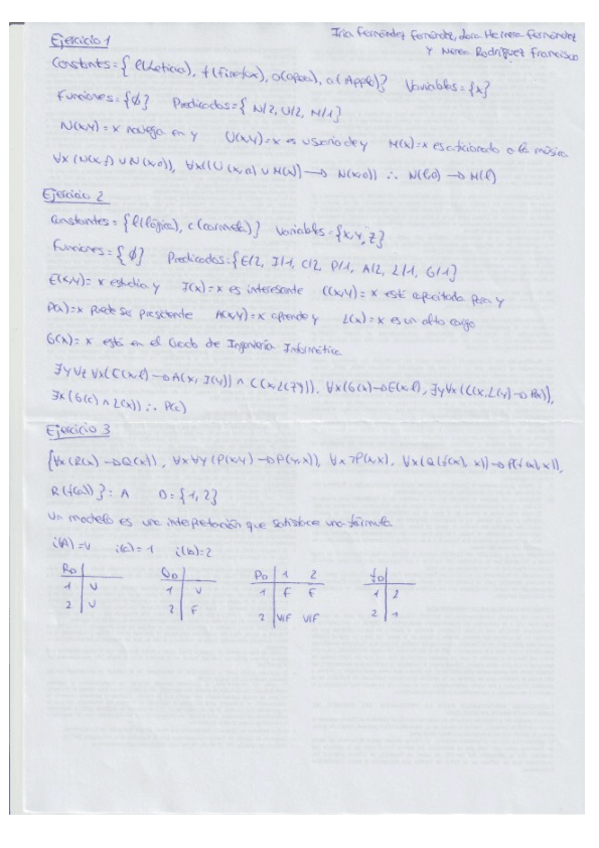 Iria Fernández Fernández, Sara Herrera Fernández
Y Nerea Rodríguez Francisco
Ejercicio 1
Constantes = { l(Leticia), f(firefox), o(opera), a(Apple)} Variables = {x}
Funciones = {∅} Predicados = { N/2, U/2, M/1}
N(x,y) = x navega en y U(x,y) = x es usuario de y M(x) = x es aficionado a la música
∀x (N(x,f) ∪ N(x,o)), ∀x((U(x,a) ∪ M(x)) → N(x,o)) ∴ N(l,o) → M(l)
Ejercicio 2
Constantes = {l(lógica), c(carmela)} Variables = {x,y,z}
Funciones = {∅} Predicados = {E/2, I/1, C/2, P/1, A/2, L/1, G/1}
E(x,y) = x estudia y I(x) = x es interesante C(x,y) = x está capacitado para y
P(x) = x puede ser presidente A(x,y) = x aprende y L(x) = x es un alto cargo
G(x) = x está en el Grado de Ingeniería Informática
∃y∀z ∀x(E(x,l) → A(x, I(y)) ∧ C(x,L(z))). ∀x(G(x) → E(x,l), ∃y∀x(C(x,L(y) → P(x)),
∃x(G(c) ∧ L(x)) ∴ P(c)
Ejercicio 3
{∀x(R(x) → Q(x)), ∀x∀y(P(x,y) → P(y,x)), ∀x ¬P(x,x), ∀x(Q(f(x), x)) → P(f(x),x)),
R(f(a))} : A D = {1,2}
Un modelo es una interpretación que satisface una fórmula
i(A) = V i(a) = 1 i(b) = 2
R_D Q_D P_D 1 2 f_D
1 V 1 V 1 F F 1 2
2 V 2 F 2 V/F V/F 2 1